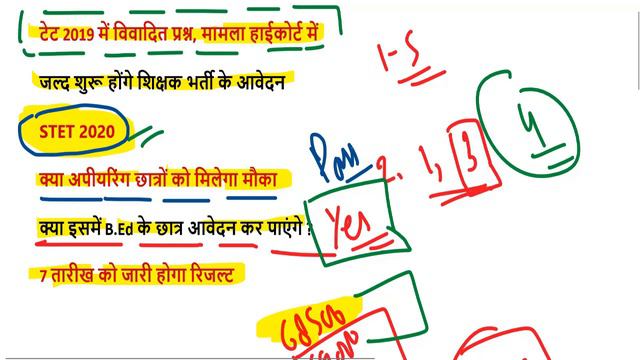 टेट 2019 में विवादित प्रश्न, मामला हाईकोर्ट में
जल्द शुरू होंगे शिक्षक भर्ती के आवेदन
STET 2020
क्या अपीयरिंग छात्रों को मिलेगा मौका
क्या इसमें B.Ed के छात्र आवेदन कर पाएंगे ?
7 तारीख को जारी होगा रिजल्ट
1-5
4
Pass
2, 1, 3
Yes